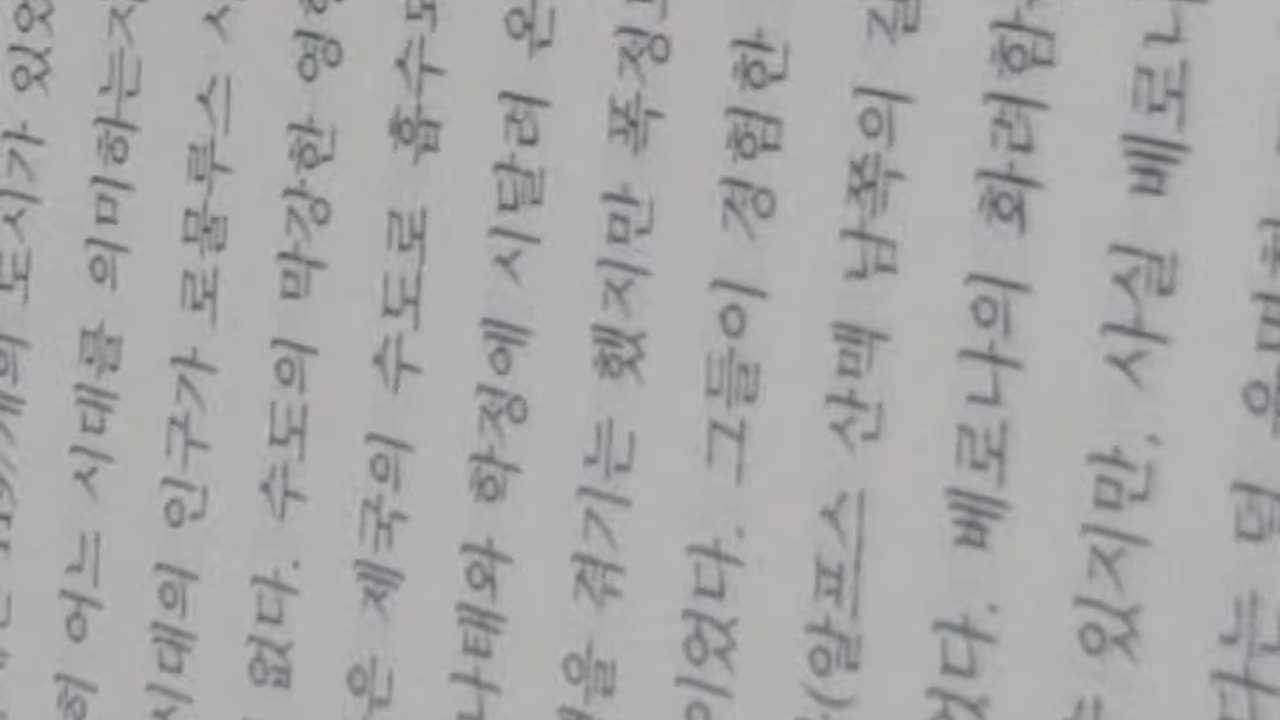 1197개의 도시가 있었
히 어느 시대를 의미하는지
시대의 인구가 로물루스 시
없다. 수도의 막강한 영향
은 제국의 수도로 흡수되
나태와 학정에 시달려 온
을 겪기는 했지만 폭정
이었다. 그들이 경험한
(알프스 산맥 남쪽의 갈
었다. 베로나의 화려함
는 있지만, 사실 베로나
다는 덜 유명한